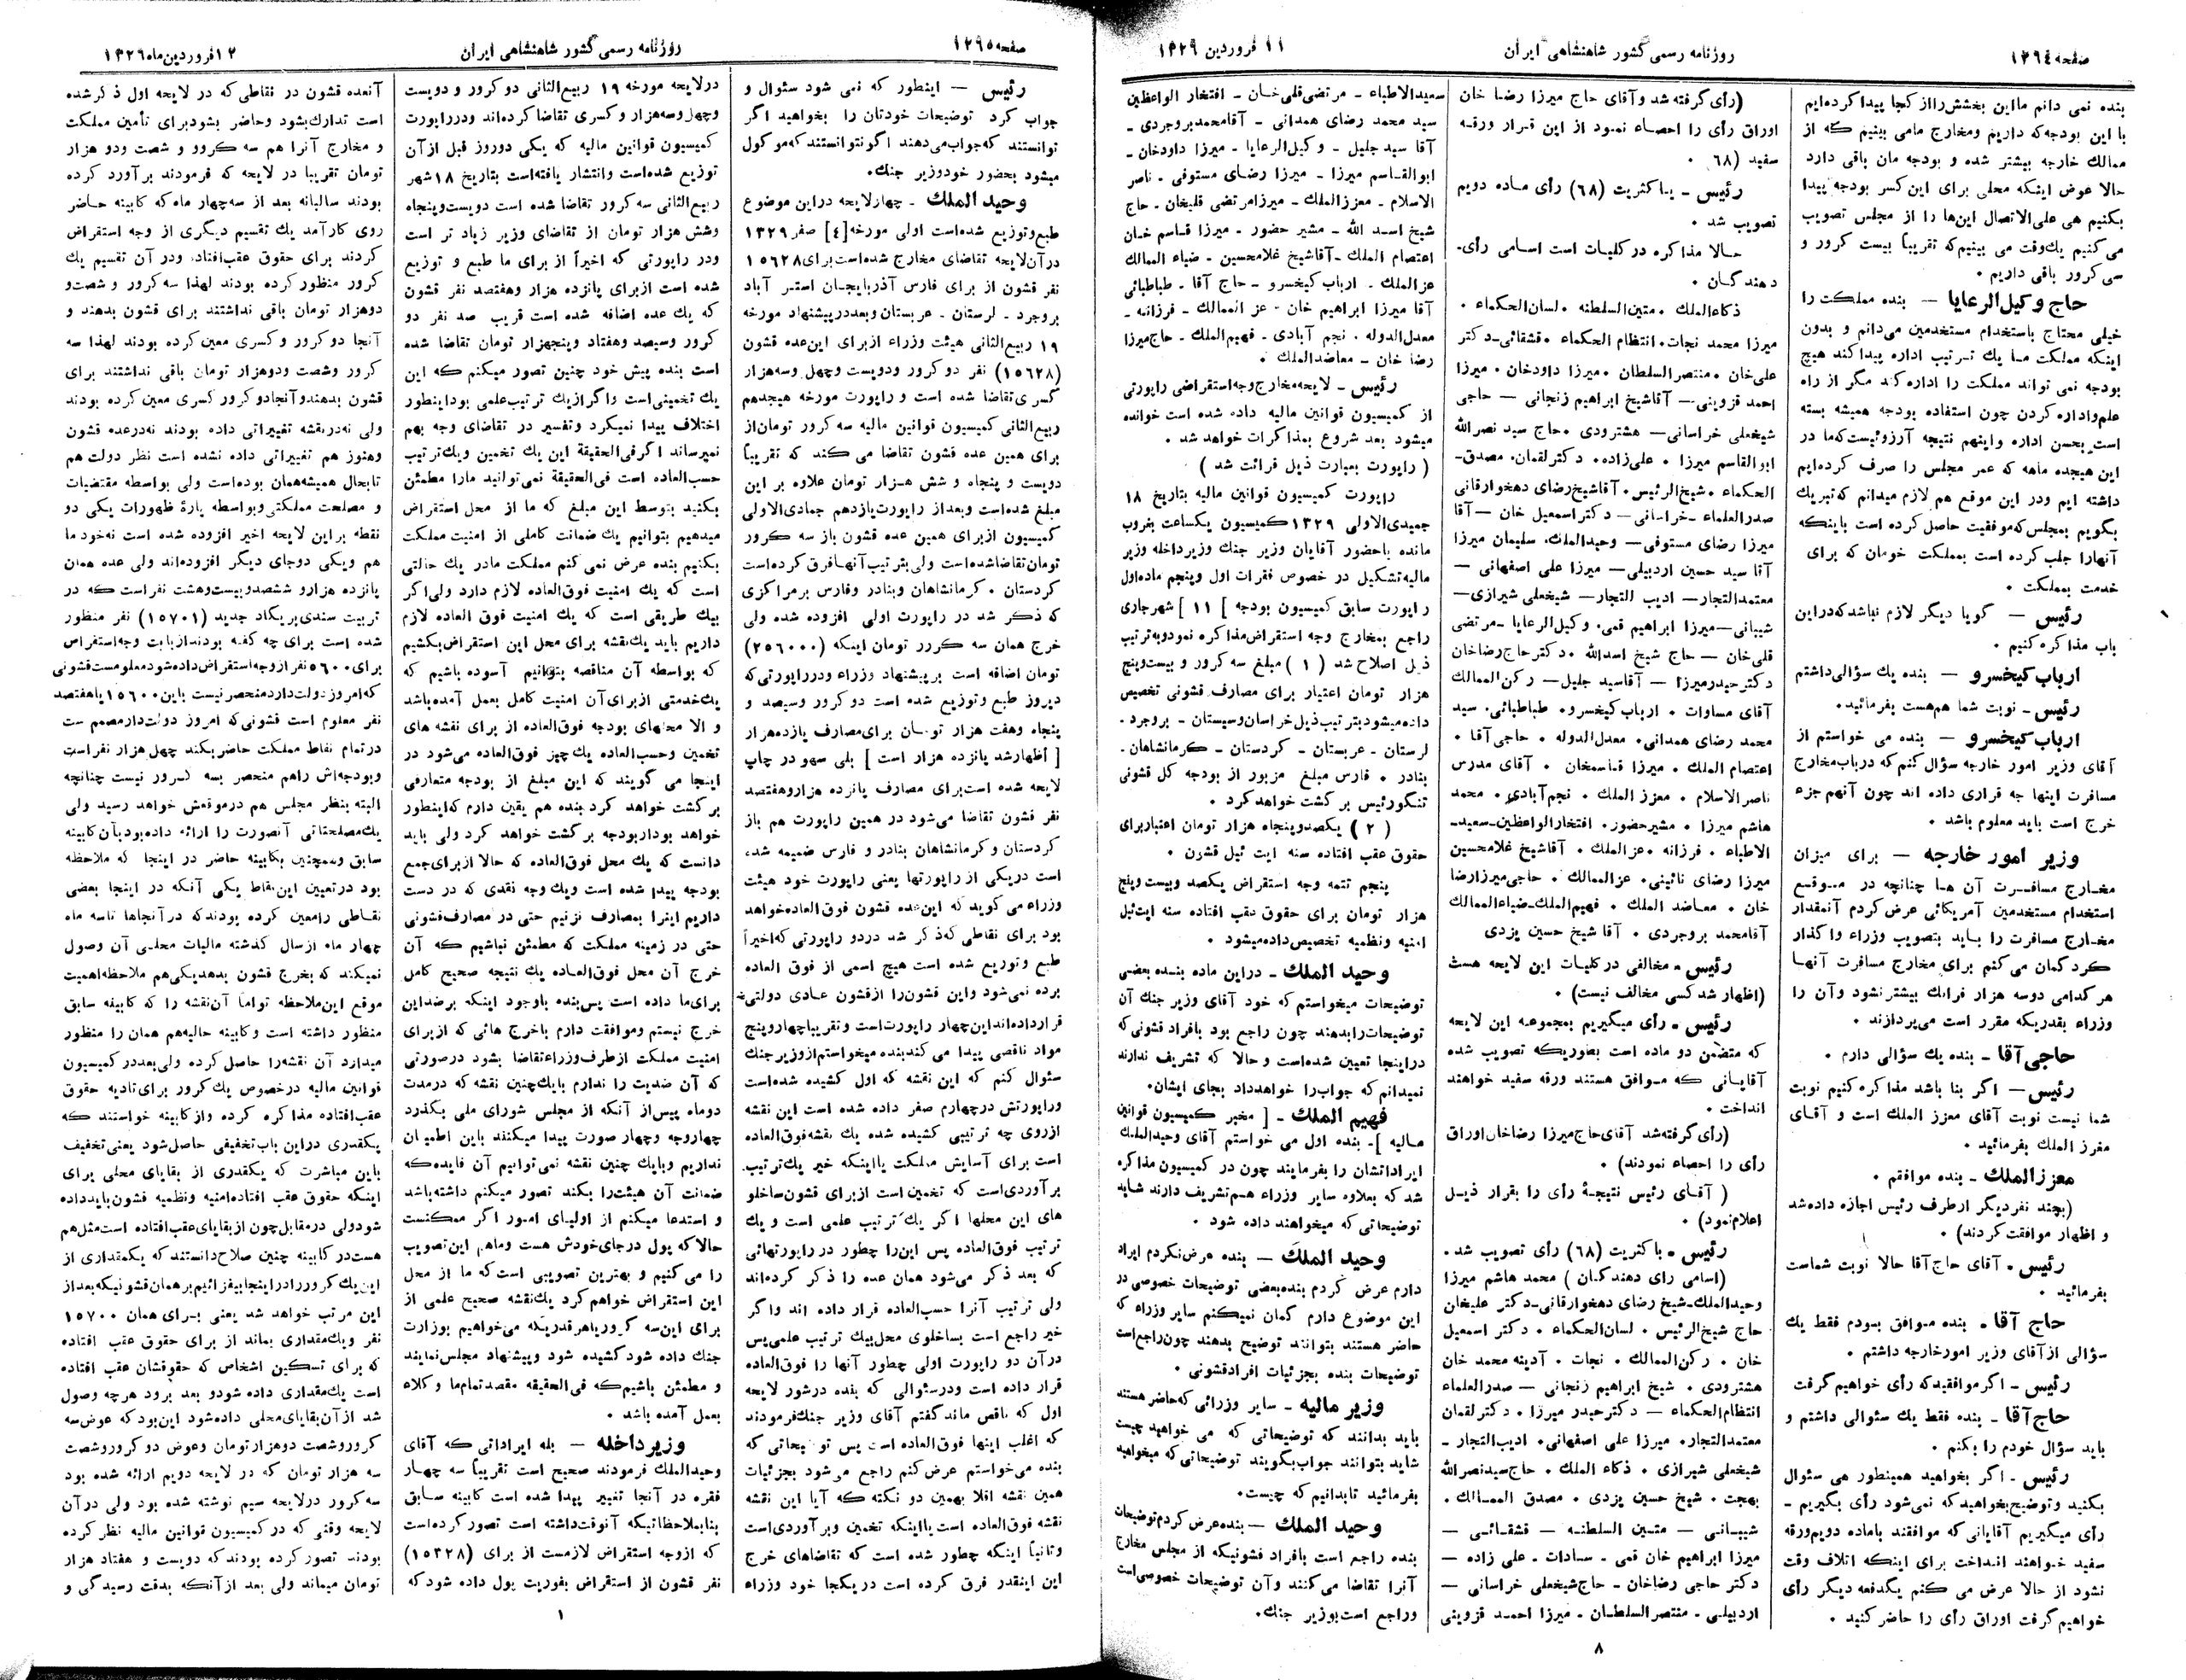 صفحه ۱۲۶٤
روزنامه رسمی کشور شاهنشاهی ایران
۱۱ فروردین ۱۳۲۹
بنده نمی دانم مااین بخشش رااز کجا پیدا کرده‌ایم
با این بودجه‌که داریم ومخارج مامی بینیم که از
ممالك خارجه بیشتر شده و بودجه مان باقی دارد
حالا عوض اینکه محلی برای این کسر بودجه پیدا
بکنیم هی علی‌الاتصال این‌ها را از مجلس تصویب
می کنیم یك‌وقت می بینیم‌که تقریباً بیست کرور و
سی کرور باقی داریم .
حاج وکیل‌الرعایا — بنده مملکت را
خیلی محتاج باستخدام مستخدمین می‌دانم و بدون
اینکه مملکت مـا یك تـرتیب اداره پیدا کند هیچ
بودجه نمی تواند مملکت را اداره کند مگر از راه
علم‌واداره کردن چون استفاده بودجه همیشه بسته
است بحسن اداره واینهم نتیجه آرزوئیست‌که‌ما در
این هیجده ماهه که عمر مجلس را صرف کرده‌ایم
داشته ایم ودر این موقع هم لازم میدانم که تبریك
بگویم بمجلس‌که‌موفقیت حاصل کرده است باینکه
آنهارا جلب کرده است بمملکت خومان که برای
خدمت بمملکت .
رئیس — گویا دیگر لازم نباشد که‌دراین
باب مذاکره کنیم .
ارباب کیخسرو — بنده یك سؤالی‌داشتم
رئیس ـ نوبت شما هم‌هست بفرمائید.
ارباب کیخسرو — بنده می خواستم از
آقای وزیر امور خارجه سؤال کنم که درباب‌مخارج
مسافرت اینها چه قراری داده اند چون آنهم جزء
خرج است باید معلوم باشد .
وزیر امور خارجه — برای میزان
مخـارج مسافـرت آن هـا چنانچه در مـوقـع
استخدام مستخدمین آمریکائی عرض کردم آنمقدار
مخـارج مسافرت را بـاید بتصویب وزراء واگذار
کرد گمان می کنم برای مخارج مسافرت آنهـا
هر کدامی دوسه هزار فرانك بیشتر نشود وآن را
وزراء بقدریکه مقرر است می‌پردازند .
حاجی‌آقا ـ بنده یك سؤالی دارم .
رئیس — اگر بنا باشد مذاکره کنیم نوبت
شما نیست نوبت آقای معزز الملك است و آقـای
مقرز الملك بفرمائید .
معززالملك ـ بنده موافقم .
(بچند نفر دیگر از طرف رئیس اجازه داده‌شد
و اظهار موافقت کردند) .
رئیس . آقای حاج‌آقا حالا نوبت شماست
بفرمائید .
حاج آقا . بنده مـوافق بـودم فقط یك
سؤالی از آقای وزیر امورخارجه داشتم .
رئیس ـ اگر موافقید که رأی خواهیم گرفت
حاج‌آقا ـ بنده فقط یك سئوالی داشتم و
باید سؤال خودم را بکنم .
رئیس ـ اگر بخواهید همینطور هی سئوال
بکنید وتوضیح بخواهید که نمی‌شود رأی بگیریم ـ
رأی میگیریم آقایانی که موافقند باماده دویم ورقه
سفید خـواهند انـداخت برای اینکه اتلاف وقت
نشود از حالا عرض می کنم یکدفعه دیگر رأی
خواهیم گرفت اوراق رأی را حاضر کنید .
(رأی گرفته شد وآقای حاج میرزا رضـا خان
اوراق رأی را احصـاء نمـود از این قـرار ورقـه
سفید (٦٨ .
رئیس ـ بـا کثریت (٦٨) رأی مـاده دویم
تصویب شد .
حـالا مذاکره در کلیات است اسـامی رأی‌ـ
دهند گـان .
ذکاءالملك . متین‌السلطنه . لسان‌الحکماء .
میرزا محمد نجات . انتظام الحکماء . قشقائی‌ـ‌دکتر
علی‌خان . منتصرالسلطان . میرزا داودخان . میرزا
احمد قزوینی — آقاشیخ ابراهیم زنجانی — حاجی
شیخعلی خراسانی — هشترودی . حاج سید نصرالله
ابوالقاسم میرزا . علی‌زاده . دکتر لقمان . مصدق‌ـ
الحکماء . شیخ‌الرئیس . آقاشیخ‌رضای دهخوارقانی
صدرالعلماء ـ‌خراسانی — دکتر اسمعیل خان — آقا
میرزا رضای مستوفی — وحیدالملك. سلیمان میرزا
آقا سید حسین اردبیلی — میرزا علی اصفهانی —
معتمدالتجار — ادیب التجار — شیخعلی شیرازی —
شیبانی — میرزا ابراهیم قمی. وکیل‌الرعایا ـ‌مرتضی
قلی‌خان — حاج شیخ اسدالله . دکتر حاج‌رضاخان
دکتر حیدرمیرزا — آقاسید جلیل — رکن‌الممالك
آقای مساوات . ارباب کیخسرو . طباطبائی . سید
محمد رضای همدانی . معدل‌الدوله . حاجی‌آقا .
اعتصام الملك . میرزا قـاسمخان . آقای مدرس
ناصرالاسلام . معزز الملك . نجم‌آبادی . محمد
هاشم میرزا . مشیرحضور . افتخارالواعظین‌ـ‌سعیدـ
الاطباء . فرزانه . عزالملك . آقاشیخ غلامحسین
میرزا رضای نائینی . عزالممالك . حاجی‌میرزارضا
خان . معـاضد الملك . فهیم‌الملك‌ـ‌ضیاءالممالك
آقامحمد بروجردی . آقا شیخ حسین یزدی
رئیس . مخالفی در کلیات این لایحه هست
(اظهار شد کسی مخالف نیست) .
رئیس . رأی میگیریم بمجموعه این لایحه
که متضمن دو ماده است بطوریکه تصویب شده
آقایـانی که مـوافق هستند ورقه سفید خواهند
انداخت .
(رأی گرفته‌شد آقای‌حاج‌میرزا رضاخان‌اوراق
رأی را احصاء نمودند) .
( آقـای رئیس نتیجـهٔ رأی را بقرار ذیـل
اعلام‌نمود) .
رئیس . با کثریت (٦٨) رأی تصویب شد .
(اسامی رای دهند گـان ) محمد هاشم میرزا
وحیدالملك‌ـ‌شیخ رضای دهخوارقانی‌ـ‌دکتر علیخان
حاج شیخ‌الرئیس . لسان‌الحکماء . دکتر اسمعیل
خان . رکن‌الممالك . نجات . آدینه محمد خان
هشترودی . شیخ ابراهیم زنجانی — صدرالعلماء
انتظام‌الحکماء — دکتر حیدر میرزا . دکتر لقمان
معتمدالتجار . میرزا علی اصفهانی . ادیب‌التجار ـ
شیخعلی شیرازی . ذکاء الملك . حاج‌سیدنصرالله
بهجت . شیخ حسین یزدی . مصدق الممـالك .
شیبـانی — متـین السلطنـه — قشقـائـی —
میرزا ابراهیم خان قمی . سـادات . علی زاده —
دکتر حاجی رضاخان ـ حاج‌شیخعلی خراسانی —
اردبیلـی . منتصرالسلطـان ـ میرزا احمـد قزوینی
سعیدالاطباء ـ مرتضی قلی‌خـان ـ افتخار الواعظین
سید محمد رضای همدانی ـ آقامحمدبروجردی ـ
آقا سید جلیل ـ وکیل‌الرعایا ـ میرزا داودخان ـ
ابوالقـاسم میرزا ـ میرزا رضای مستوفی . ناصر
الاسلام ـ معززالملك ـ میرزامرتضی قلیخان ـ حاج
شیخ اسـد الله ـ مشیر حضور ـ میرزا قـاسم خـان
اعتصام الملك ـ‌آقاشیخ غلامحسین ـ ضیاء الممالك
عزالملك . ارباب کیخسرو — حاج آقا . طباطبائی
آقا میرزا ابراهیم خان . عز الممالك ـ فرزانه ـ
معدل‌الدوله . نجم آبادی . فهیم‌الملك . حاج‌میرزا
رضا خان ـ معاضدالملك .
رئیس ـ لایحه‌مخارج‌وجه‌استقراضی راپورتی
از کمیسیون قوانین مالیه داده شده است خوانده
میشود بعد شروع بمذاکرات خواهد شد .
( راپورت بعبارت ذیل قرائت شد )
راپورت کمیسیون قوانین مالیه بتاریخ ۱۸
جمیدی‌الاولی ۱۳۲۹ کمیسیون یکساعت بغروب
مانده باحضور آقایان وزیر جنك وزیر داخله وزیر
مالیه‌تشکیل در خصوص فقرات اول وپنجم ماده‌اول
راپورت سابق کمیسیون بودجه ] ۱۱ [ شهرجاری
راجع بمخارج وجه استقراض‌مذاکره نمودوبه‌ترتیب
ذیل اصلاح شد ( ۱ ) مبلغ سه کرور و بیست‌وپنج
هزار تومان اعتبار برای مصارف قشونی تخصیص
داده‌میشود بترتیب ذیل خراسان‌وسیستان ـ بروجرد .
لرستان . عربستان ـ کردستان ـ کرمانشاهان.
بنادر . فارس مبلغ مزبور از بودجه کل قشونی
تنگورئیس برگشت خواهد کرد .
( ۲ ) یکصدوپنجاه هزار تومان اعتبار برای
حقوق عقب افتاده سنه ایت ئیل قشون .
پنجم تتمه وجه استقراض یکصد وبیست‌وپنج
هزار تومان برای حقوق عقب افتاده سنه ایت‌ئیل
امنیه ونظمیه تخصیص‌داده‌میشود .
وحید الملك ـ دراین ماده بنـده بعضی
توضیحات میخواستم که خود آقای وزیر جنك آن
توضیحات‌رابدهند چون راجع بود بافراد قشونی که
دراینجا تعیین شده‌است و حالا که تشریف ندارند
نمیدانم که جواب‌را خواهدداد بجای ایشان.
فهیم الملك ـ [ مخبر کمیسیون قوانین
مـالیه ] ـ بنده اول می خواستم آقای وحیدالملك
ایراداتشان را بفرمایند چون در کمیسیون مذاکره
شد که بعلاوه سایر وزراء هـم‌تشریف دارند شاید
توضیحاتی که میخواهند داده شود .
وحید الملك — بنده عرض‌نکردم ایراد
دارم عرض کردم بنده‌بعضی توضیحات خصوصی در
این موضوع دارم گمان نمیکنم سایر وزراء که
حاضر هستند بتوانند توضیح بدهند چون‌راجع‌است
توضیحات بنده بجزئیات افراد قشونی .
وزیر مالیه ـ سایر وزرائی که‌حاضر هستند
باید بدانند که توضیحاتی که می خواهید چیست
شاید بتوانند جواب بگویند توضیحاتی که میخواهید
بفرمائید تابدانیم که چیست.
وحید الملك — بنده‌عرض کردم توضیحات
بنده راجع است بافراد قشونیکه از مجلس مخارج
آنرا تقاضا می کنند وآن توضیحات خصوصی‌است
وراجع است‌بوزیر جنك.
۸
صفحه ۱۲٦٥
روزنامه رسمی کشور شاهنشاهی ایران
۱۲ فروردین ماه ۱۳۲٦
رئیس — اینطور که نمی شود سئوال و
جواب کرد توضیحات خودتان را بخواهید اگر
توانستند که جواب می‌دهند اگر نتوانستند که‌موکول
میشود بحضور خودوزیر جنك.
وحید الملك . چهارلایحه دراین موضوع
طبع‌وتوزیع شده‌است اولی مورخه [٤] صفر ۱۳۲۹
درآن‌لایحه تقاضای مخارج شده‌است‌برای ۱٥٦۲۸
نفر قشون از برای فارس آذربایجـان استـر آباد
بروجرد ـ لرستان ـ عربستان وبعددرپیشنهاد مورخه
۱۹ ربیع‌الثانی هیئت وزراء ازبرای این‌عده قشون
(۱٥٦۲۸) نفر دو کرور ودویست وچهل وسه‌هزار
کسری تقاضا شده است و راپورت مورخه هیجدهم
ربیع‌الثانی کمیسیون قوانین مالیه سه کرور تومان‌از
برای همین عده قشون تقاضا می کند که تقریباً
دویست و پنجاه و شش هـزار تومان علاوه بر این
مبلغ شده‌است وبعداز راپورت‌یازدهم جمادی‌الاولی
کمیسیون ازبرای همین عده قشون باز سه کـرور
تومان‌تقاضاشده‌است ولی بترتیب آنهافرق کرده‌است
کردستان . کرمانشاهان وبنادر وفارس برمراکزی
که ذکر شد در راپورت اولی افزوده شده ولی
خرج همان سه کرور تومان اینکه (۲٥٦۰۰۰)
تومان اضافه است برپیشنهاد وزراء ودرراپورتی که
دیروز طبع وتوزیع شده است دو کرور وسیصد و
پنجاه وهفت هزار تومان برای مصارف یازده‌هزار
[ اظهارشد پانزده هزار است ] بلی سهو در چاپ
لایحه شده است‌برای مصارف پانزده هزاروهفتصد
نفر قشون تقاضا می‌شود در همین راپورت هم باز
کردستان و کرمانشاهان بنادر و فارس ضمیمه شده
است دریکی از راپورتها یعنی راپورت خود هیئت
وزراء می گوید که این‌عده قشون فوق‌العاده‌خواهد
بود برای نقاطی که ذکر شد دردو راپورتی که‌اخیراً
طبع وتوزیع شده است هیچ اسمی از فوق العاده
برده نمی‌شود واین قشون‌را ازقشون عـادی دولتی
قرارداده‌انداین‌چهار راپورت‌است و تقریباچهاروپنج
مواد ناقصی پیدا می کند بنده میخواستم‌ازوزیرجنك
سئوال کنم که این نقشه که اول کشیده شده‌است
وراپورتش درچهارم صفر داده شده است این نقشه
ازروی چه ترتیبی کشیده شده یك نقشه‌فوق‌العاده
است برای آسایش مملکت یااینکه خیر یك‌ترتیب
برآوردی‌است که تخمین است ازبرای قشون‌ساخلو
های این محلها اگر یك ترتیب علمی است و یك
ترتیب فوق‌العاده پس این‌را چطور در راپورتهائی
که بعد ذکر می‌شود همان عده را ذکر کرده‌اند
ولی ترتیب آنرا حسب‌العاده قرار داده اند واگر
خیر راجع است بساخلوی محل‌بیك ترتیب علمی‌پس
درآن دو راپورت اولی چطور آنها را فوق‌العاده
قرار داده است ودرسئوالی که بنده درشور لایحه
اول که ناقص ماند گفتم آقای وزیر جنك فرمودند
که اغلب اینها فوق‌العاده است پس توضیحاتی که
بنده می‌خواستم عرض‌کنم راجع می‌شود بجزئیات
همین نقشه اقلا بهمین دو نکته که آیا این نقشه
نقشه فوق‌العاده است یااینکه تخمین وبرآوردی‌است
وثانیاً اینکه چطور شده است که تقاضاهای خرج
این اینقدر فرق کرده است دریکجا خود وزراء
درلایحه مورخه ۱۹ ربیع‌الثانی دو کرور و دویست
وچهل وسه‌هزار و کسری تقاضا کرده‌اند ودرراپورت
کمیسیون قوانین مالیه که یکی دوروز قبل ازآن
توزیع شده‌است وانتشار یافته‌است بتاریخ ۱۸ شهر
ربیع‌الثانی سه کرور تقاضا شده است دویست‌وپنجاه
وشش هزار تومان از تقاضای وزیر زیاد تر است
ودر راپورتی که اخیراً از برای ما طبع و توزیع
شده است ازبرای پانزده هزار وهفتصد نفر قشون
که یك عده اضافه شده است قریب صد نفر دو
کرور وسیصد وهفتاد وپنجهزار تومان تقاضا شده
است بنده پیش خود چنین تصور میکنم که این
یك تخمینی است واگرازیك ترتیب علمی بوداینطور
اختلاف پیدا نمیکرد وتفسیر در تقاضای وجه بهم
نمیرساند اگرفی‌الحقیقة این یك تخمین ویك‌ترتیب
حسب‌العاده است فی‌الحقیقة نمی‌توانید مارا مطمئن
بکنید بتوسط این مبلغ که ما از محل استقراض
میدهیم بتوانیم یك ضمانت کاملی از امنیت مملکت
بکنیم بنده عرض نمی کنم مملکت مادر یك حالتی
است که یك امنیت فوق‌العاده لازم دارد ولی‌اگر
بیك طریقی است که یك امنیت فوق العاده لازم
داریم باید یك‌نقشه برای محل این استقراض‌بکشیم
که بواسطه آن مناقصه بتوانیم آسوده باشیم که
یك‌خدمتی ازبرای‌آن امنیت کامل بعمل آمده‌باشد
و الا محلهای بودجه فوق‌العاده از برای نقشه های
تخمین وحسب‌العاده یك‌چیز فوق‌العاده می‌شود در
اینجا می گویند که این مبلغ از بودجه متعارفی
برگشت خواهد کرد بنده هم یقین دارم که‌اینطور
خواهد بوداربودجه برگشت خواهد کرد ولی باید
دانست که یك محل فوق‌العاده که حالا ازبرای‌جمع
بودجه پیدا شده است ویك وجه نقدی که در دست
داریم اینرا بمصارف نزنیم حتی در مصارف‌قشونی
حتی در زمینه مملکت که مطمئن نباشیم که آن
خرج آن محل فوق‌العـاده یك نتیجه صحیح کامل
برای‌ما داده است پس‌بنده باوجود اینکه برضداین
خرج نیستم وموافقت دارم باخرج هائی که ازبرای
امنیت مملکت ازطرف‌وزراءتقاضا بشود درصورتی
که آن ضدیت را ندارم بایك‌چنین نقشه که درمدت
دوماه پیس‌از آنکه از مجلس شورای ملی بگذرد
چهاروجه وچهار صورت پیدا میکند باین اطمینان
نداریم وبایك چنین نقشه نمی‌توانیم آن فایده‌که
ضمانت آن هیئت‌را بکند تصور میکنم داشته‌باشد
و استدعا میکنم از اولیـای امـور اگر ممکنست
حالا که پول درجای‌خودش هست وماهم این‌تصویب
را می کنیم و بهترین تصویبی است‌که ما از محل
این استقراض خواهم کرد یك‌نقشه صحیح علمی از
برای این‌سه کروریاهرقدریکه می‌خواهیم بوزارت
جنك داده شود کشیده شود وپیشنهاد مجلس‌نمایند
و مطمئن باشیم‌که فی‌الحقیقه مقصدتمام‌ما و کلاء
بعمل آمده باشد .
وزیرداخله — بله ایراداتی که آقای
وحیدالملك فرمودند صحیح است تقریباً سه چهـار
فقره در آنجا تغییر پیدا شده است کابینه سـابق
بنابملاحظاتیکه آنوقت‌داشته است تصور کرده‌است
که ازوجه استقراض لازمست از برای (۱٥۳۲۸)
نفر قشون از استقراض بفوریت پول داده شود که
آنعده قشون در نقاطی که در لایحه اول ذکرشده
است تدارك‌بشود وحاضر بشود برای تأمین مملکت
و مخارج آنرا هم سه کرور و شصت ودو هزار
تومان تقریبا در لایحه که فرمودند برآورد کرده
بودند سالیانه بعد از سه‌چهار ماه که کابینه حـاضر
روی کارآمد یك تقسیم دیگری از وجه استقراض
کردند برای حقوق عقب‌افتاد، ودر آن تقسیم یك
کرور منظور کرده بودند لهذا سه کرور و شصت‌و
دوهزار تومان باقی نداشتند برای قشون بدهند و
آنجا دو کرور و کسری معین کرده بودند لهذا سه
کرور وشصت ودوهزار تومان باقی نداشتند برای
قشون بدهندوآنجادو کرور کسری معین کرده بودند
ولی نه‌درنقشه تغییراتی داده بودند نه‌درعده قشون
وهنوز هم تغییراتی داده نشده است نظر دولت هم
تابحال همیشه‌همان بوده‌است ولی بواسطه مقتضیات
و مصلحت مملکتی وبواسطه پارهٔ ظهورات یکی دو
نقطه بر این لایحه اخیر افزوده شده است نه‌خود ما
هم ویکی دوجای دیگر افزوده‌اند ولی عده همان
پانزده هزارو ششصدوبیست‌وهشت نفراست که در
تربیت سندی‌بریگاد جدید (۱٥۷۰۱) نفر منظور
شده است برای چه گفته بودندازبابت وجه‌استقراض
برای ۱٥٦۰۰ نفر ازوجه‌استقراض‌داده‌شود معلومست‌قشونی
که‌امروز دولت‌داردمنحصر نیست باین ۱٥٦۰۰ یاهفتصد
نفر معلوم است قشونی که امروز دولت‌دارمصمم ست
درتمام نقاط مملکت حاضر بکند چهل هزار نفراست
وبودجه‌اش راهم منحصر بسه کرور نیست چنانچه
البته بنظر مجلس هم درموقعش خواهد رسید ولی
یك‌مصلحتاتی آنصورت را ارائه داده‌بودبآن کابینه
سابق وهمچنین بکابینه حاضر در اینجا که ملاحظه
بود درتعیین این نقاط یکی آنکه در اینجا بعضی
نقـاطی رامعین کرده بودند که درآنجاها تاسه ماه
چهار ماه ازسال گذشته مالیات محلـی آن وصول
نمیکند که بخرج قشون بدهدیکی‌هم ملاحظه‌اهمیت
موقع این‌ملاحظه تواماً آن‌نقشه را که کابینه سابق
منظور داشته است و کابینه حالیه‌هم همان را منظور
میدارد آن نقشه‌را حاصل کرده ولی‌بعددر کمیسیون
قوانین مالیه درخصوص یك کرور برای‌تادیه حقوق
عقب‌افتاده مذاکره کرده وازکابینه خواستند که
یکقدری دراین باب‌تخفیفی حاصل‌شود یعنی‌تخفیف
باین مباشرت که یکقدری از بقایای محلی برای
اینکه حقوق عقب افتاده‌امنیه ونظمیه قشون‌بایدداده
شودولی درمقابل‌چون ازبقایای‌عقب‌افتاده است‌مثل‌هم
هست‌در کابینه چنین صلاح‌دانستند که یکمقداری از
این‌یك‌کروررادراینجابیفزائیم‌برهمان‌قشونیکه بعداز
این مرتب خواهد شد یعنی بـرای همان ۱٥۷۰۰
نفر ویك‌مقداری بماند از برای حقوق عقب افتاده
که برای تسکین اشخاص که حقوقشان عقب افتاده
است یك‌مقداری داده شودو بعد برود هرچه وصول
شد ازآن‌بقایای‌محلی داده‌شود این‌بود که عوض‌سه
کروروشصت دوهزارتومان وعوض دو کروروشصت
سه هزار تومان که در لایحه دویم ارائه شده بود
سه کرور درلایحه سیم نوشته شده بود ولی درآن
لایحه وقتی که در کمیسیون قوانین مالیه نظر کرده
بودند تصور کرده بودند که دویست و هفتاد هزار
تومان میماند ولی بعد ازآنکه بدقت رسیدگی و
۱